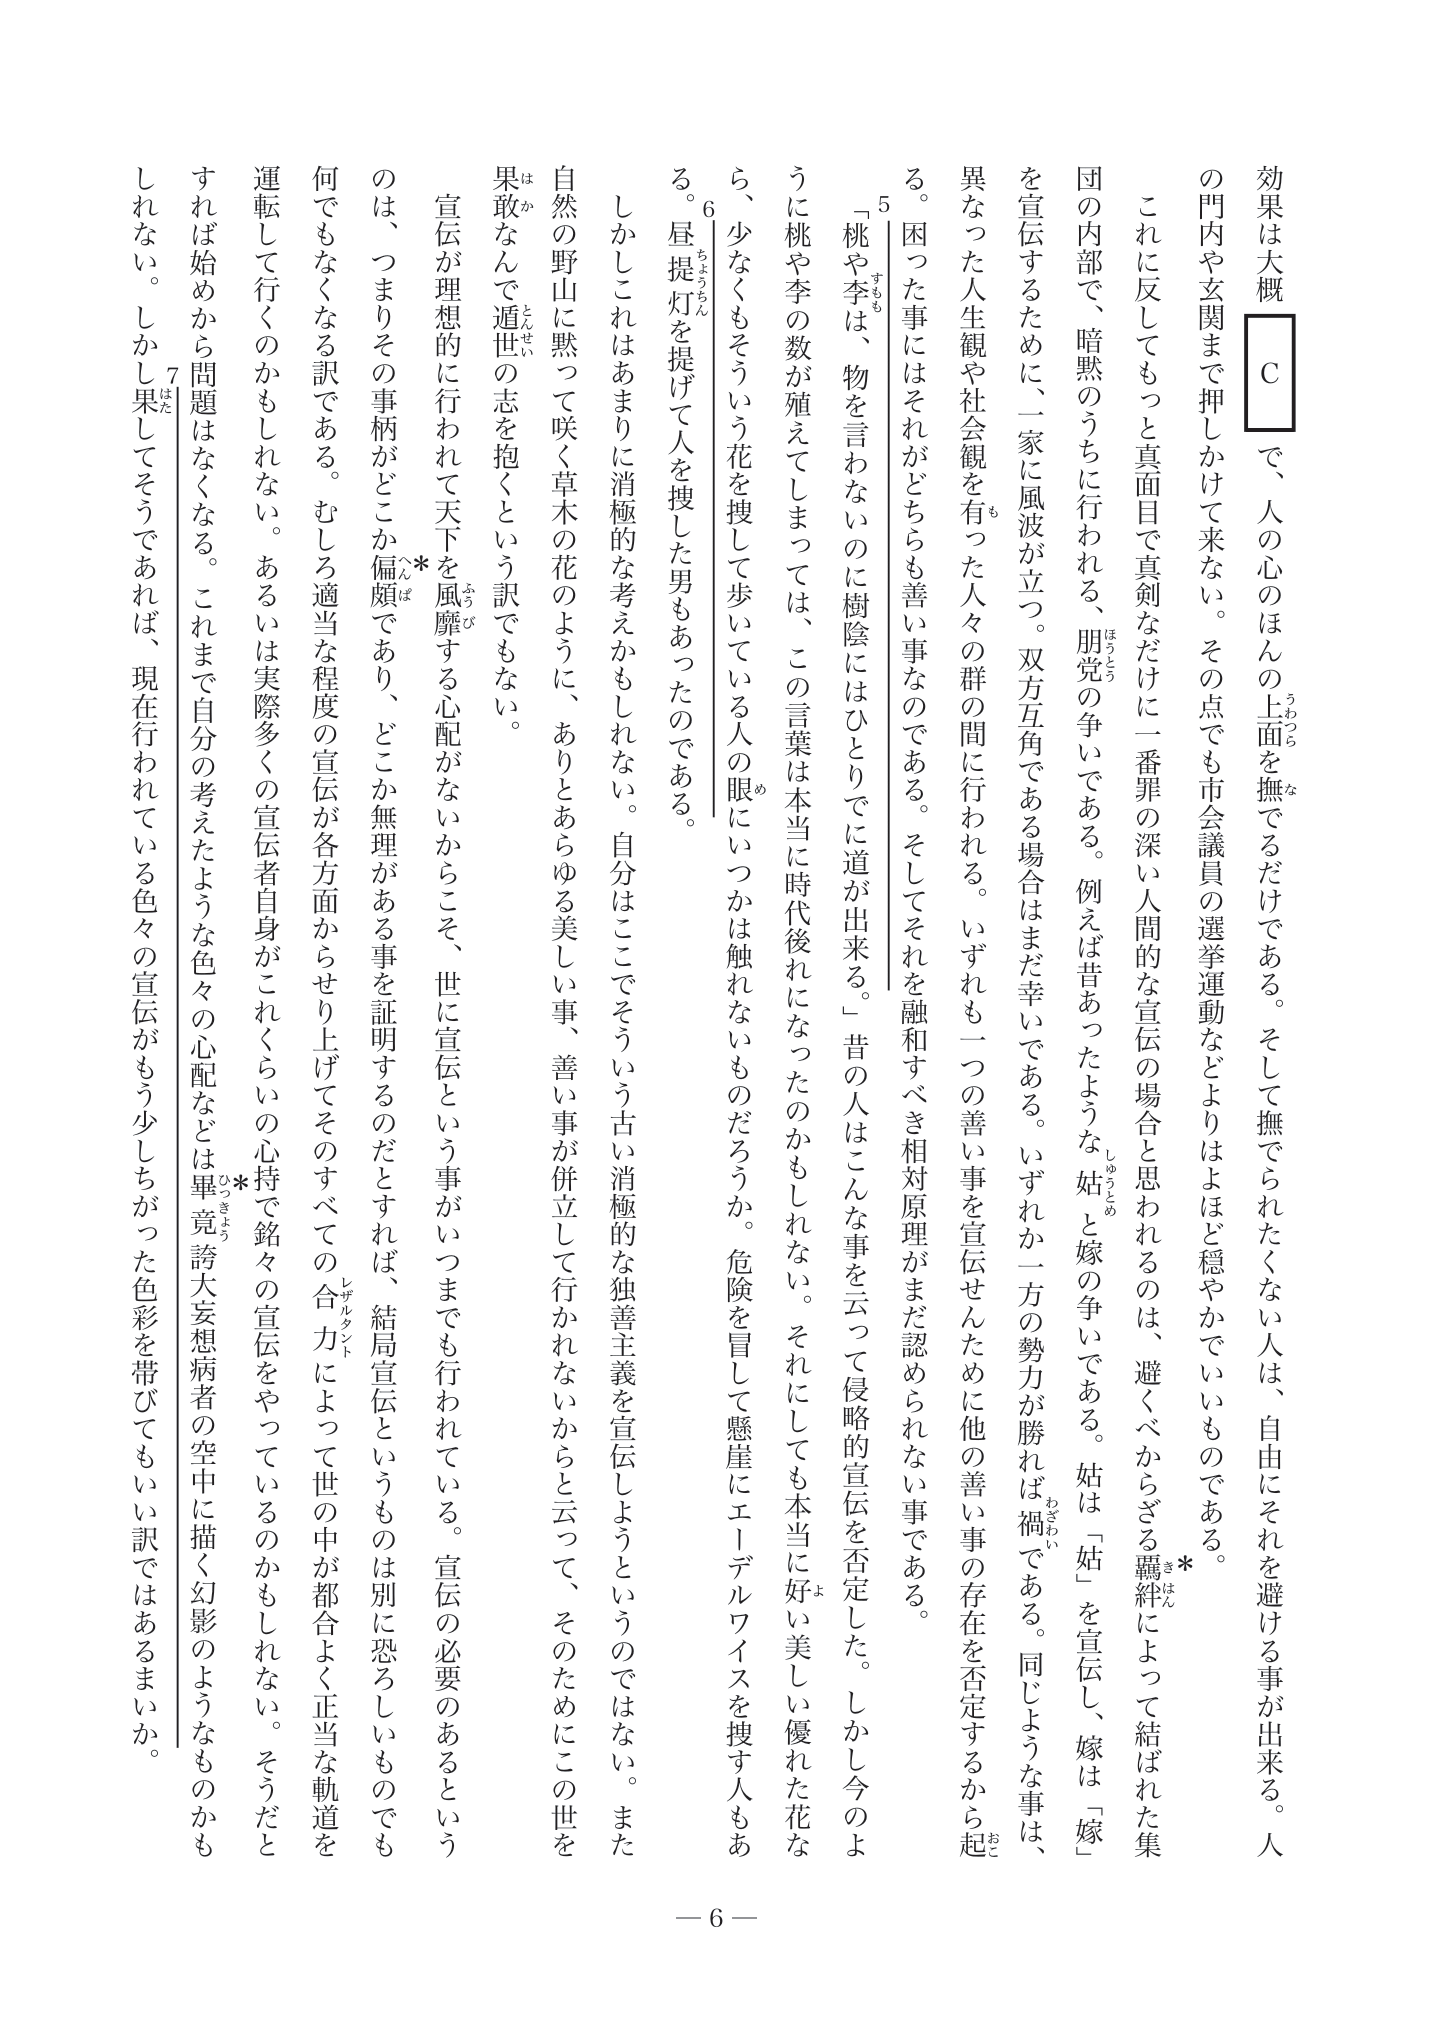 効果は大概 C で、人の心のほんの上面を撫でるだけである。そして撫でられたくない人は、自由にそれを避ける事が出来る。人
の門内や玄関まで押しかけて来ない。その点でも市会議員の選挙運動などよりはよほど穏やかでいいものである。
これに反してもっと真面目で真剣なだけに一番罪の深い人間的な宣伝の場合と思われるのは、避くべからざる*羈絆によって結ばれた集
団の内部で、暗黙のうちに行われる、朋党の争いである。例えば昔あったような姑と嫁の争いである。姑は「姑」を宣伝し、嫁は「嫁」
を宣伝するために、一家に風波が立つ。双方互角である場合はまだ幸いである。いずれか一方の勢力が勝れば禍である。同じような事は、
異なった人生観や社会観を有った人々の群の間に行われる。いずれも一つの善い事を宣伝せんために他の善い事の存在を否定するから起
る。5困った事にはそれがどちらも善い事なのである。そしてそれを融和すべき相対原理がまだ認められない事である。
「桃や李は、物を言わないのに樹陰にはひとりでに道が出来る。」昔の人はこんな事を云って侵略的宣伝を否定した。しかし今のよ
うに桃や李の数が殖えてしまっては、この言葉は本当に時代後れになったのかもしれない。それにしても本当に好い美しい優れた花な
ら、6少なくもそういう花を捜して歩いている人の眼にいつかは触れないものだろうか。危険を冒して懸崖にエーデルワイスを捜す人もあ
る。昼提灯を提げて人を捜した男もあったのである。
しかしこれはあまりに消極的な考えかもしれない。自分はここでそういう古い消極的な独善主義を宣伝しようというのではない。また
自然の野山に黙って咲く草木の花のように、ありとあらゆる美しい事、善い事が併立して行かれないからと云って、そのためにこの世を
果敢なんで遁世の志を抱くという訳でもない。
宣伝が理想的に行われて天下を風靡する心配がないからこそ、世に宣伝という事がいつまでも行われている。宣伝の必要のあるという
のは、つまりその事柄がどこか*偏頗であり、どこか無理がある事を証明するのだとすれば、結局宣伝というものは別に恐ろしいものでも
何でもなくなる訳である。むしろ適当な程度の宣伝が各方面からせり上げてそのすべての合力によって世の中が都合よく正当な軌道を
運転して行くのかもしれない。あるいは実際多くの宣伝者自身がこれくらいの心持で銘々の宣伝をやっているのかもしれない。そうだと
すれば始めから問題はなくなる。これまで自分の考えたような色々の心配などは*畢竟誇大妄想病者の空中に描く幻影のようなものかも
しれない。しかし7果してそうであれば、現在行われている色々の宣伝がもう少しちがった色彩を帯びてもいい訳ではあるまいか。
— 6 —